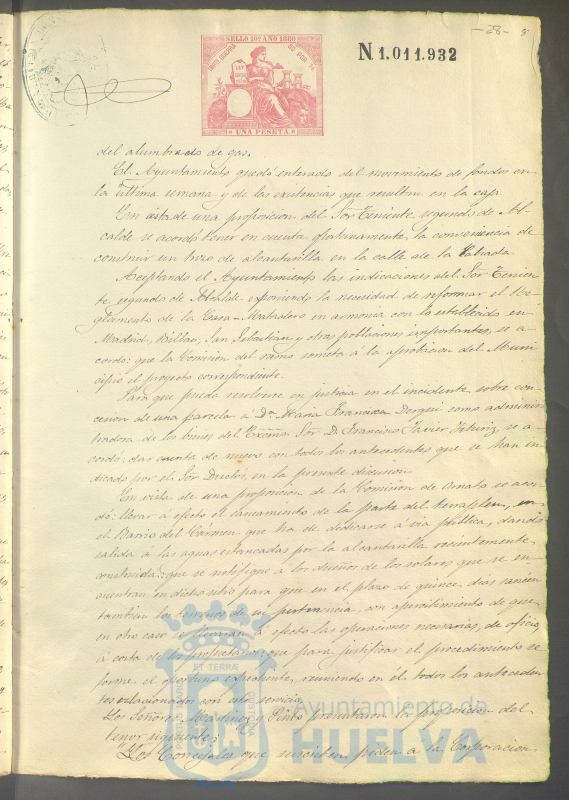 -28-
SELLO 10º AÑO 1880
N 1.011.932
UNA PESETA
del alumbrado de gas.
El Ayuntamiento quedó enterado del movimiento de fondos en
la última semana y de las existencias que resultan en la caja
En vista de una proposicion del Sor Teniente segundo de Al-
calde se acordó tener en cuenta oportunamente, la conveniencia de
construir un trozo de alcantarilla en la calle de la
Aceptando el Ayuntamiento las indicaciones del Sor Tenien
te segundo de Alcalde exponiendo la necesidad de reformar el Re-
glamento de la Casa-Matadero en armonia con lo establecido en
Madrid, Bilbao, San Sebastian y otras poblaciones importantes, se a-
cordó: que la Comision del ramo someta á la aprobacion del Muni
cipio el proyecto correspondiente.
Para que pueda resolverse en justicia en el incidente sobre con-
cesion de una parcela á Dª Maria Francisca como adminis-
tradora de los bienes del Excmo. Sor D. Francisco Javier se a-
cordó: dar cuenta de nuevo con todos los antecedentes que se han in-
dicado por el Sor en la presente discusion
En vista de una proposicion de la Comision de Ornato se acor
dó: llevar á efecto el saneamiento de la parte del terraplen, en
el Barrio del Cármen que ha de dedicarse á via pública, dando
salida á las aguas estancadas por la alcantarilla recientemente
construida: que se notifique á los dueños de los solares que se en-
cuentran en dicho sitio para que en el plazo de quince dias saneen
tambien los terrenos de su pertenencia, con apercibimiento de que
en otro caso se llevarán á efecto las operaciones necesarias, de oficio,
á costa del propietario: que para justificar el procedimiento se
forme el oportuno expediente, reuniendo en él todos los anteceden
tes relacionados con este servicio.
Los Señores Martinez y Pinto presentaron la proposicion del
tenor siguiente:
"Los Concejales que suscriben piden á la Corporacion
Ayuntamiento de
HUELVA